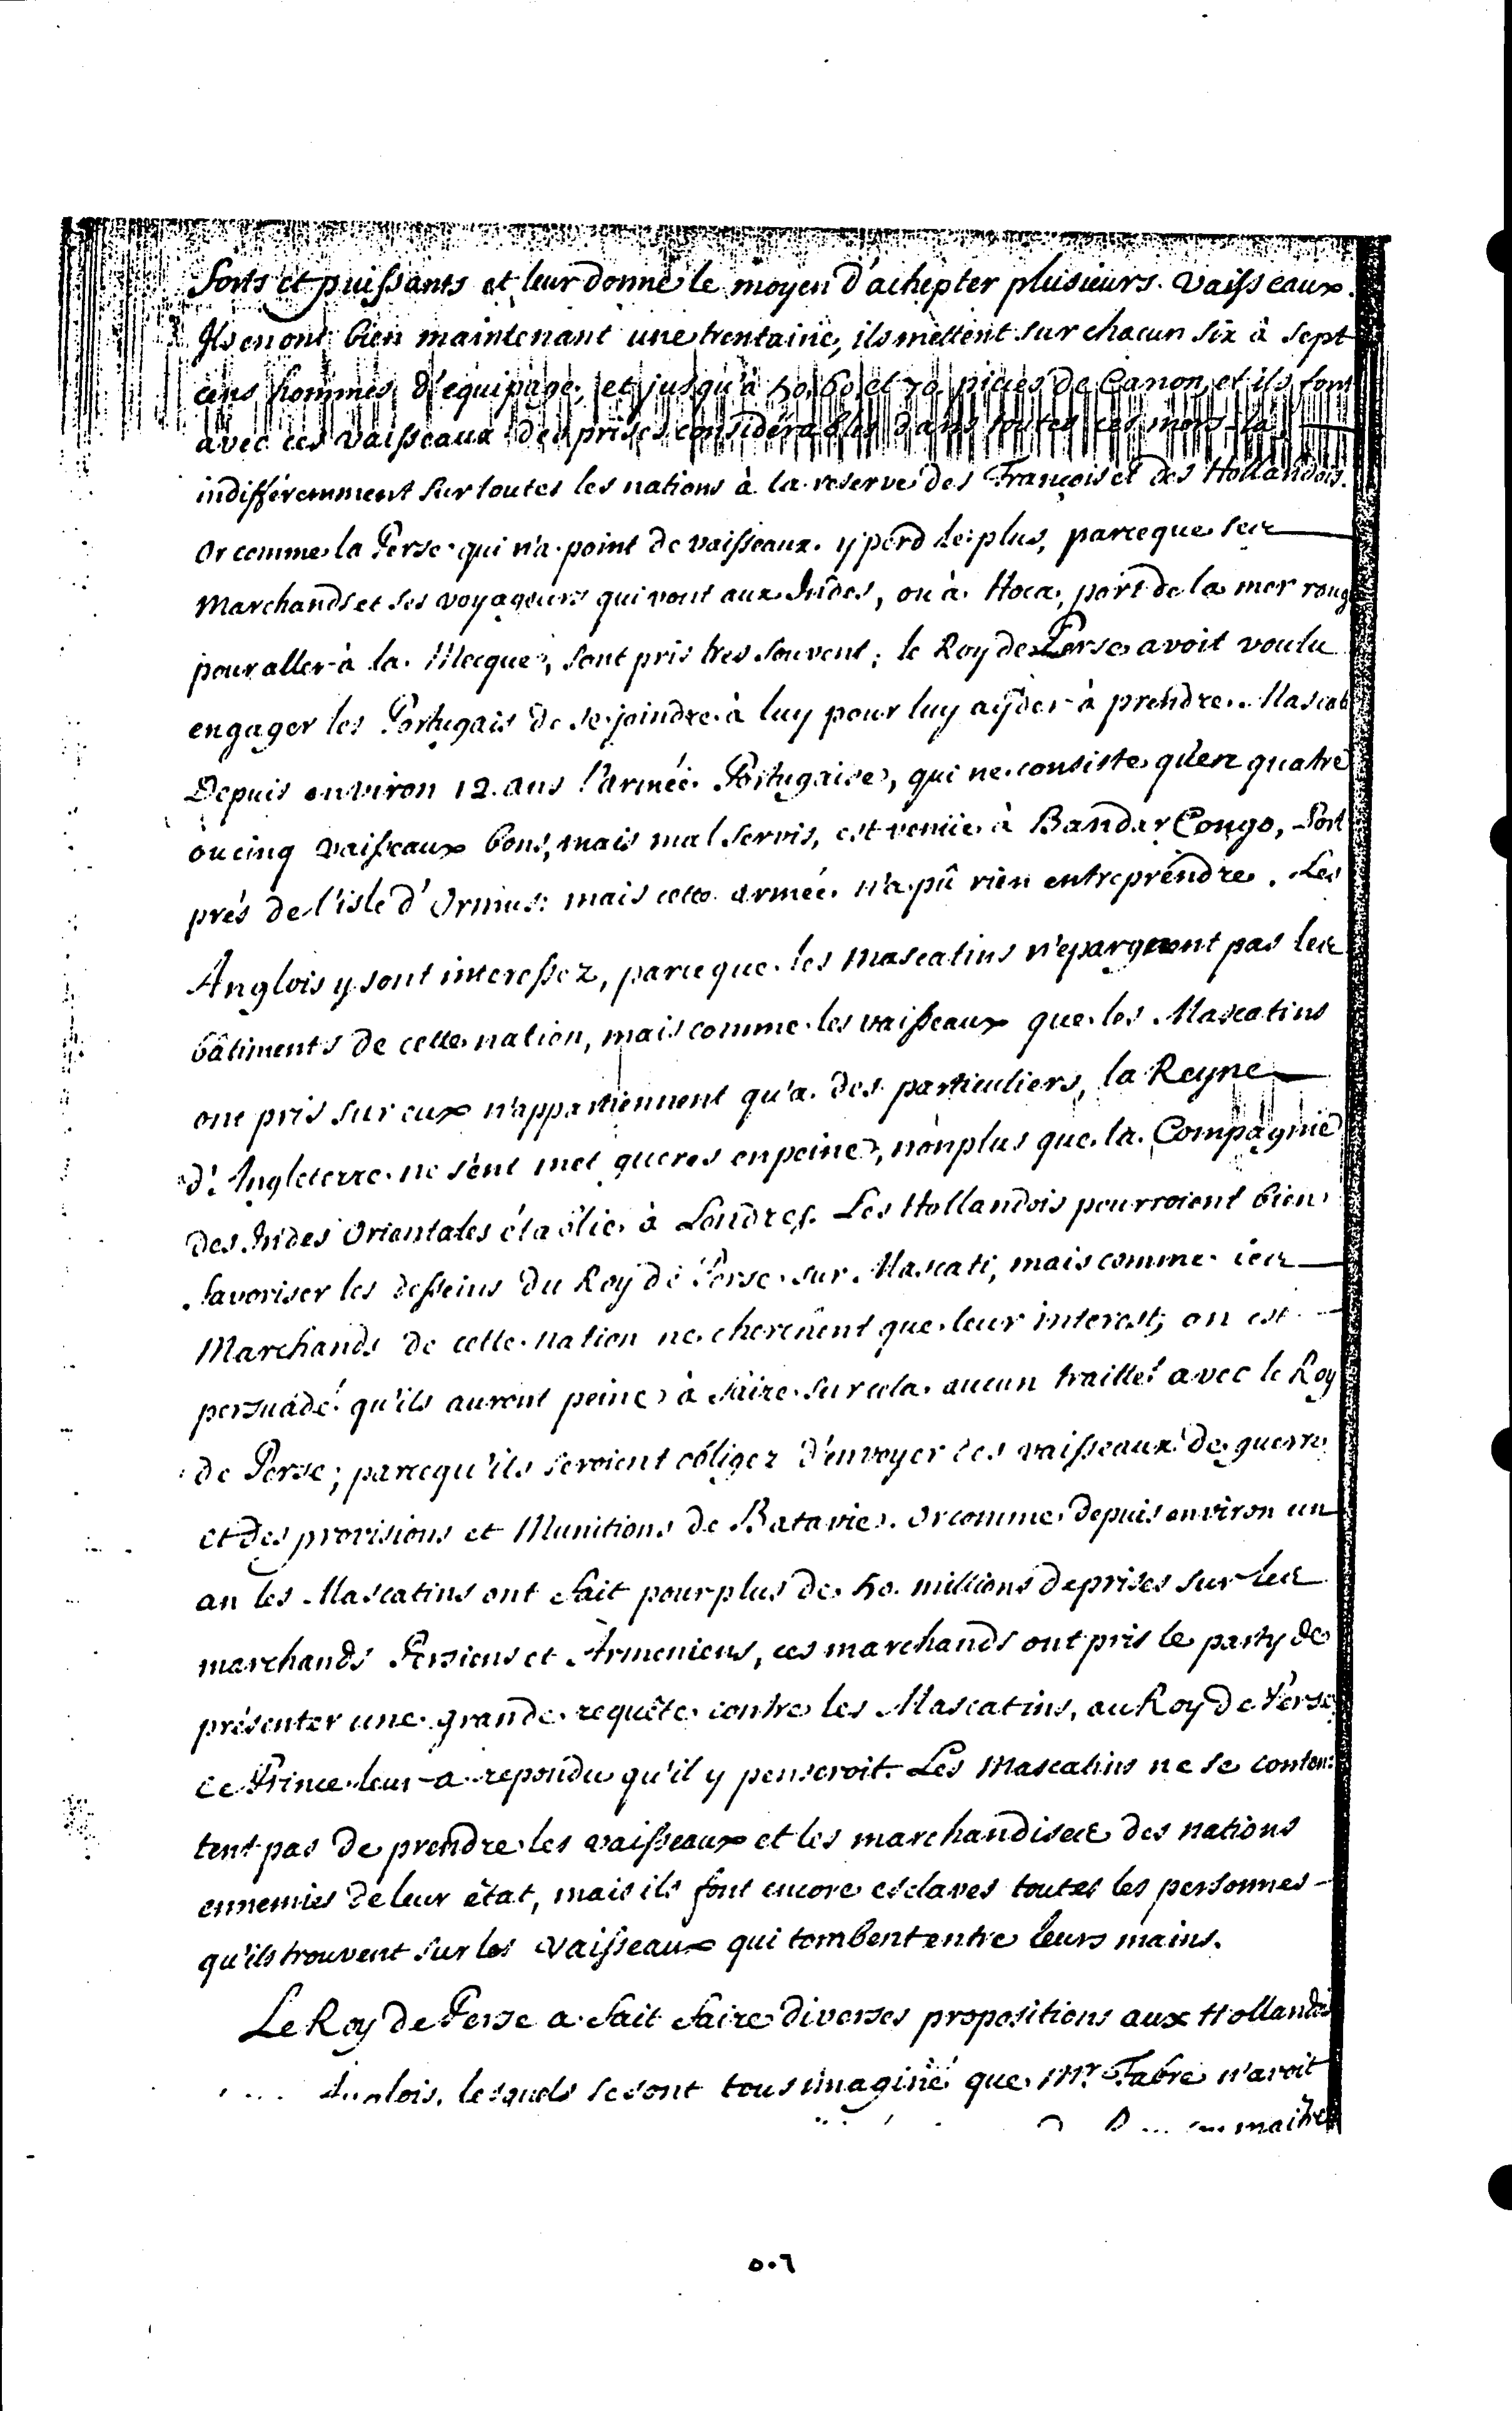 forts et puissants et leur donne le moyen d'achepter plusieurs vaisseaux.
Ils en ont bien maintenant une trentaine, ils mettent sur chacun six à sept
cens hommes d'equipage, et jusqu'à 50. 60. et 70 pieces de Canon, et ils font
avec ces vaisseaux des prises considérables dans toutes ces mers là
indifféremment sur toutes les nations à la reserve des François et des Hollandois.
Or comme la Perse qui n'a point de vaisseaux y perd le plus, parceque ses
Marchands et ses voyageurs qui vont aux Indes, ou à Moca, port de la mer roug
pour aller à la Mecque, sont pris tres souvent; le Roy de Perse avoit voulu
engager les Portugais de se joindre à luy pour luy ayder à prendre Mascat
Depuis environ 12 ans l'armée Portugaise, qui ne consiste qu'en quatre
ou cinq vaisseaux bons, mais mal servis, est venüe à Bandar Congo, Port
prés de l'isle d'Ormus: mais cette armée n'a pû rien entreprendre. Les
Anglois y sont interessez, parceque les Mascatins n'epargnent pas les
bâtiments de cette nation, mais comme les vaisseaux que les Mascatins
ont pris sur eux n'appartiennent qu'a des particuliers, la Reyne
d'Angleterre ne s'ent met gueres en peine, non plus que la Compagnie
des Indes Orientales établie à Londres. Les Hollandois pourroient bien
favoriser les desseins du Roy de Perse sur Mascati, mais comme ies
Marchands de cette nation ne cherchent que leur interest, on est
persuadé qu'ils auront peine à faire sur cela aucun traitté avec le Roy
de Perse; parcequ'ils seroient obligez d'envoyer des vaisseaux de guerre
et des provisions et Munitions de Batavie. Or comme depuis environ un
an les Mascatins ont fait pour plus de 50. millions de prises sur les
marchands Persiens et Armeniens, ces marchands ont pris le party de
présenter une grande requête contre les Mascatins, au Roy de Perse
Ce Prince leur a repondu qu'il y penseroit. Les Mascatins ne se conten:
tent pas de prendre les vaisseaux et les marchandises des nations
ennemies de leur état, mais ils font encore esclaves toutes les personnes
qu'ils trouvent sur les vaisseaux qui tombent entre leurs mains.
Le Roy de Perse a fait faire diverses propositions aux Hollandois
Anglois, lesquels se sont tous imaginé que Mr. Fabre n'avoit
maitre
٥٠٦